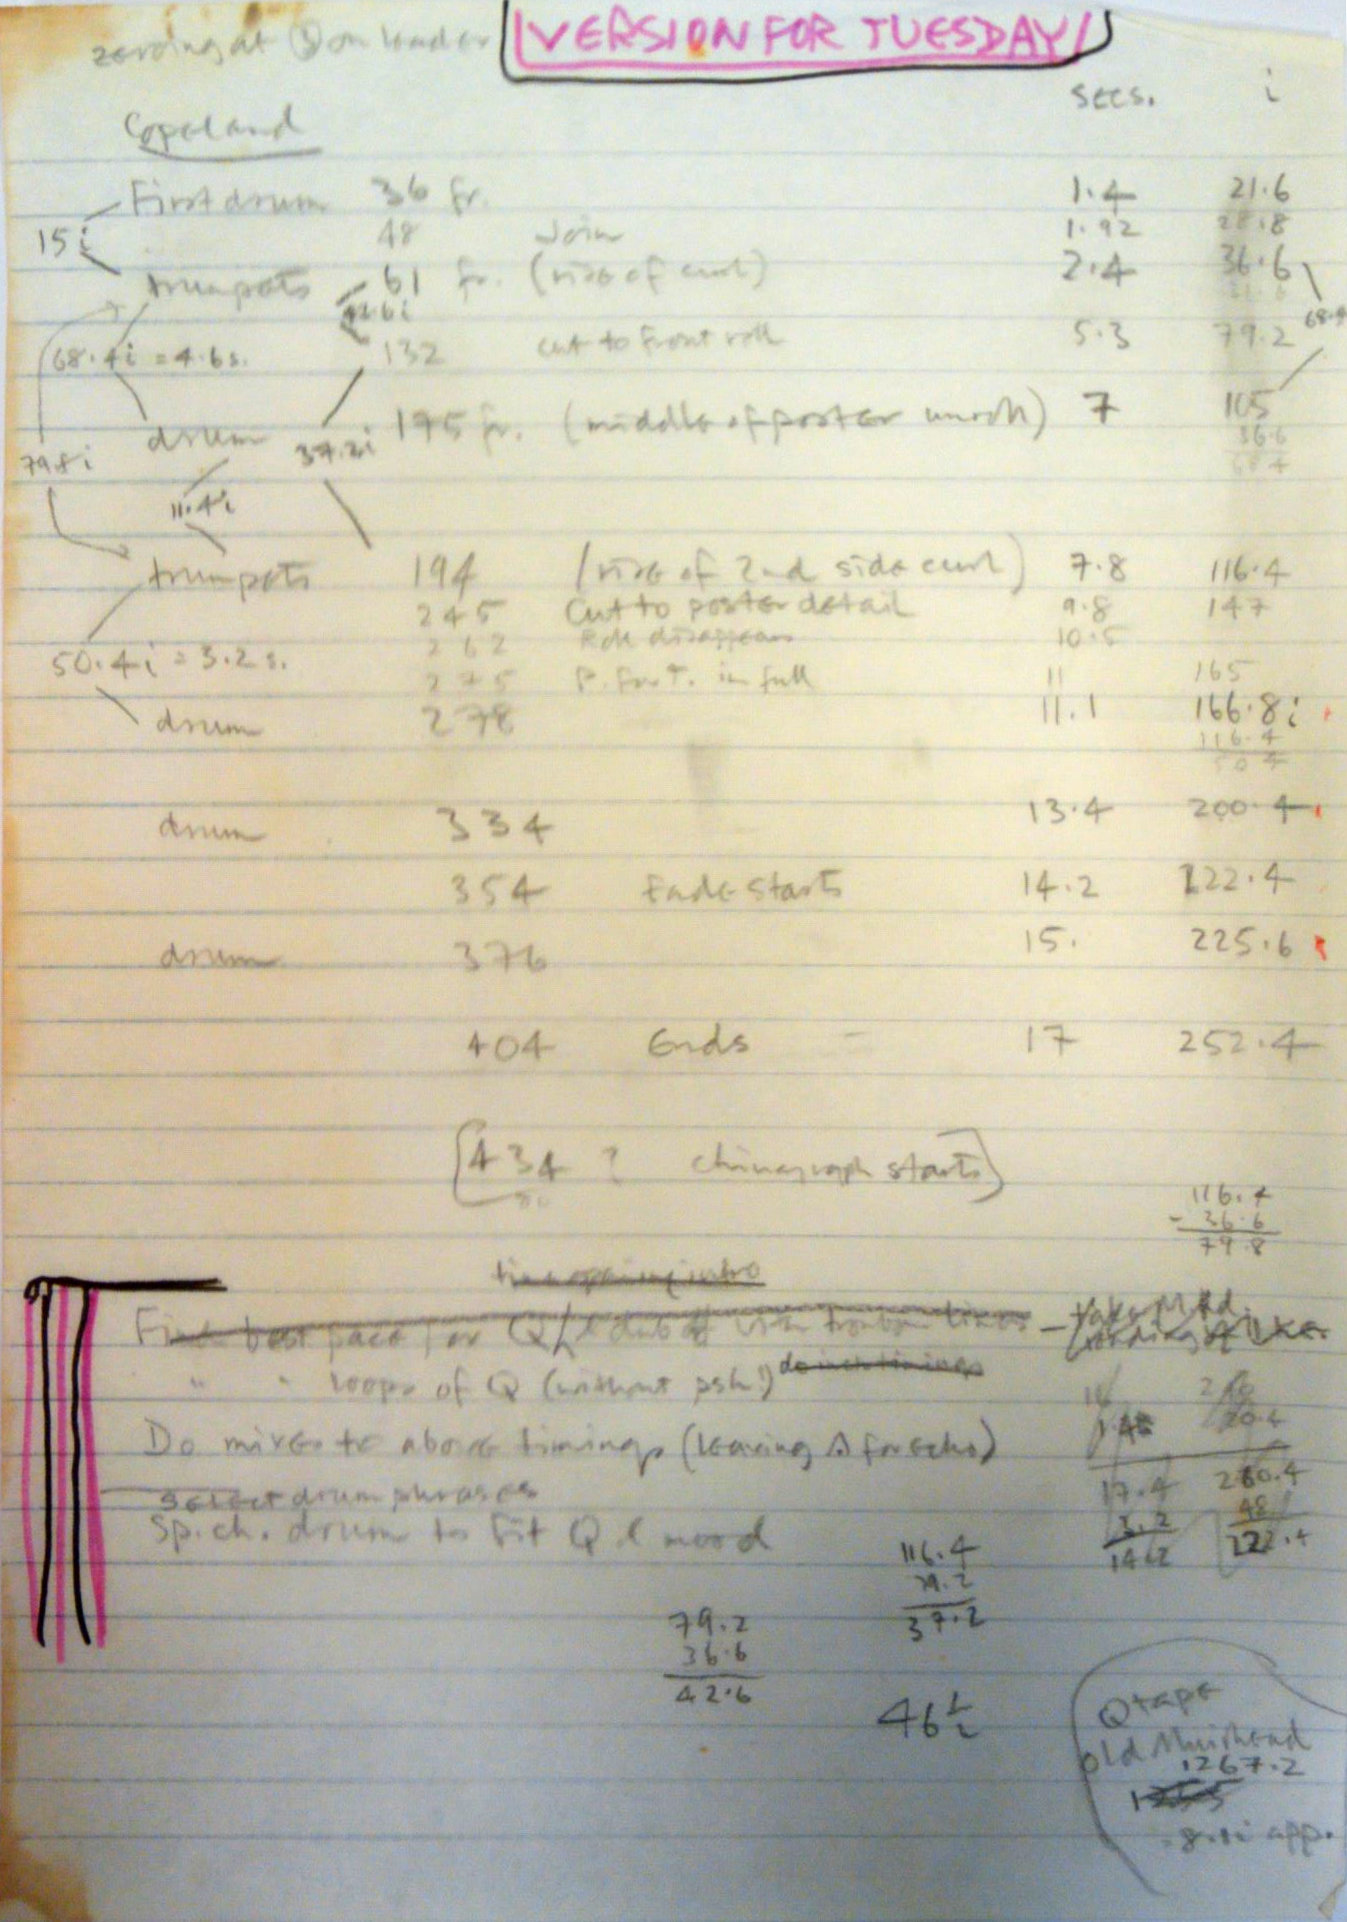 zeroing at ③ on leader
VERSION FOR TUESDAY
secs. i
Copeland
First drum 36 fr. 1.4 21.6
15 i
48 Join 1.92 28.8
trumpets 61 fr. (rise of curl) 2.4 36.6
42.6i
68.4
68.4i = 4.6s. 132 cut to front roll 5.3 79.2
drum 175 fr. (middle of poster) 7 105
36.6
68.4
79.8i
37.2i
11.4i
trumpets 194 (rise of 2nd side curl) 7.8 116.4
245 Cut to poster detail 9.8 147
262 Roll disappears 10.5
50.4i = 3.2s.
275 P. for T. in full 11 165
drum 278 11.1 166.8i
116.4
50.4
drum 334 13.4 200.4
354 Fade starts 14.2 222.4
drum 376 15. 225.6
404 Ends 17 252.4
[434 ? chinagraph starts]
116.4
- 36.6
79.8
Find best pace for Q/L dub with
" " loops of Q (without psh!)
Do mixes to above timings (leaving for echo)
select drum phrases
Sp. ch. drum to fit Q L mood
17.4 260.4
3.2 48
14.2 222.4
116.4
79.2
37.2
79.2
36.6
42.6
46½
Q tape
old Muirhead
1267.2
1255
8.1i app.